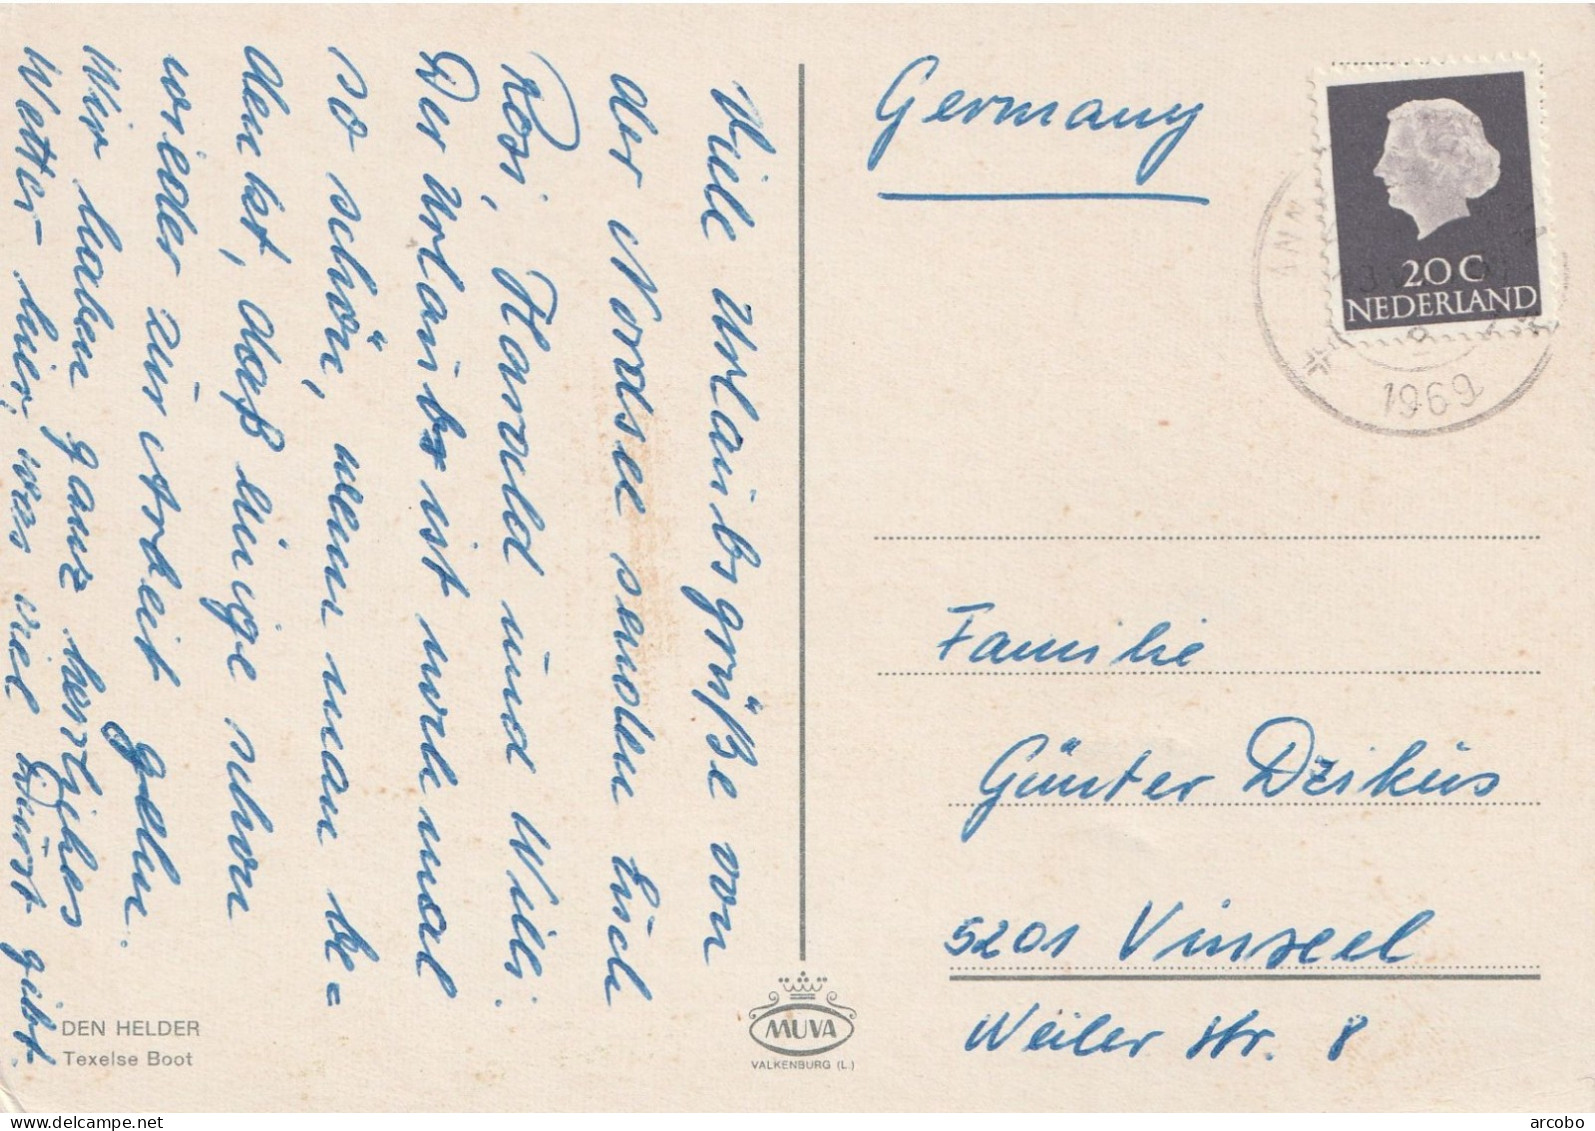 Viele Urlaubsgrüße von
der Nordsee senden Euch
Rosi, Harold und Willi.
Der Urlaub ist nochmal
so schön, wenn man be=
denkt, daß einige schon
wieder zur Arbeit gehen.
Wir haben ganz herrliches
Wetter hier, was viel Durst gibt.
DEN HELDER
Texelse Boot
MUVA
VALKENBURG (L.)
Germany
20 C
NEDERLAND
ANN
1969
Familie
Günter Dzikus
5201 Vinxel
Weiler Str. 8
arcobo